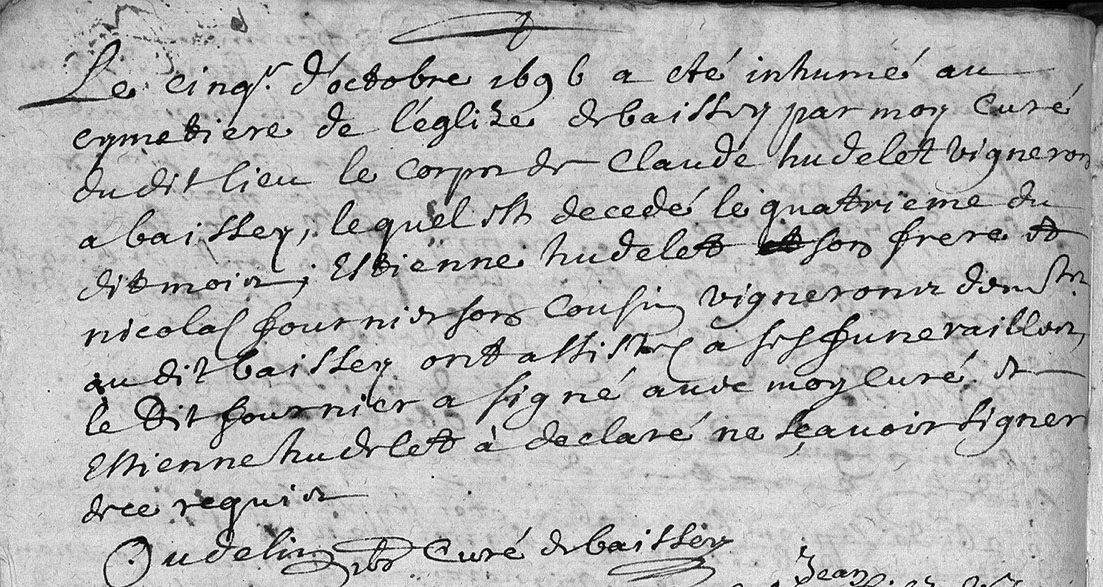 Le cinqr. d'octobre 1696 a été inhumé au
cymetiere de l'églize de baissey par moy Curé
du dit lieu le corps de Claude hudelet vigneron
a baissey, lequel est decedé le quatrieme du
dit mois, Estienne hudelet son frere et
nicolas fournier son cousin vignerons demtr.
au dit baissey ont assistes a ses funerailles,
le Dit fournier a signé avec moy curé et
Estienne hudelet à declaré ne sçavoir signer
de ce requis
Oudelin pbr Curé de baissey
Jean